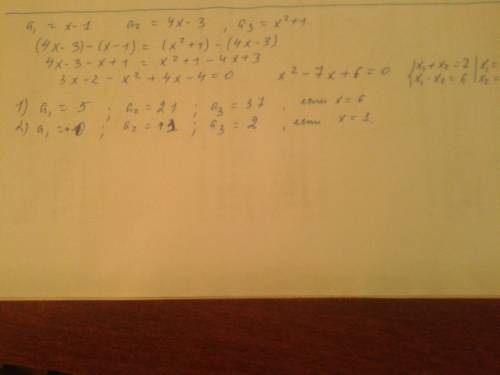 a₁ = x - 1 a₂ = 4x - 3 , a₃ = x² + 1.
(4x - 3) - (x - 1) = (x² + 1) - (4x - 3)
4x - 3 - x + 1 = x² + 1 - 4x + 3
3x - 2 - x² + 4x - 4 = 0 x² - 7x + 6 = 0 { x₁ + x₂ = 7 x₁ · x₂ = 6 | x₁ = x₂ =
1) a₁ = 5 ; a₂ = 21 ; a₃ = 37 , если x = 6
2) a₁ = 0 ; a₂ = 1 ; a₃ = 2 , если x = 1.